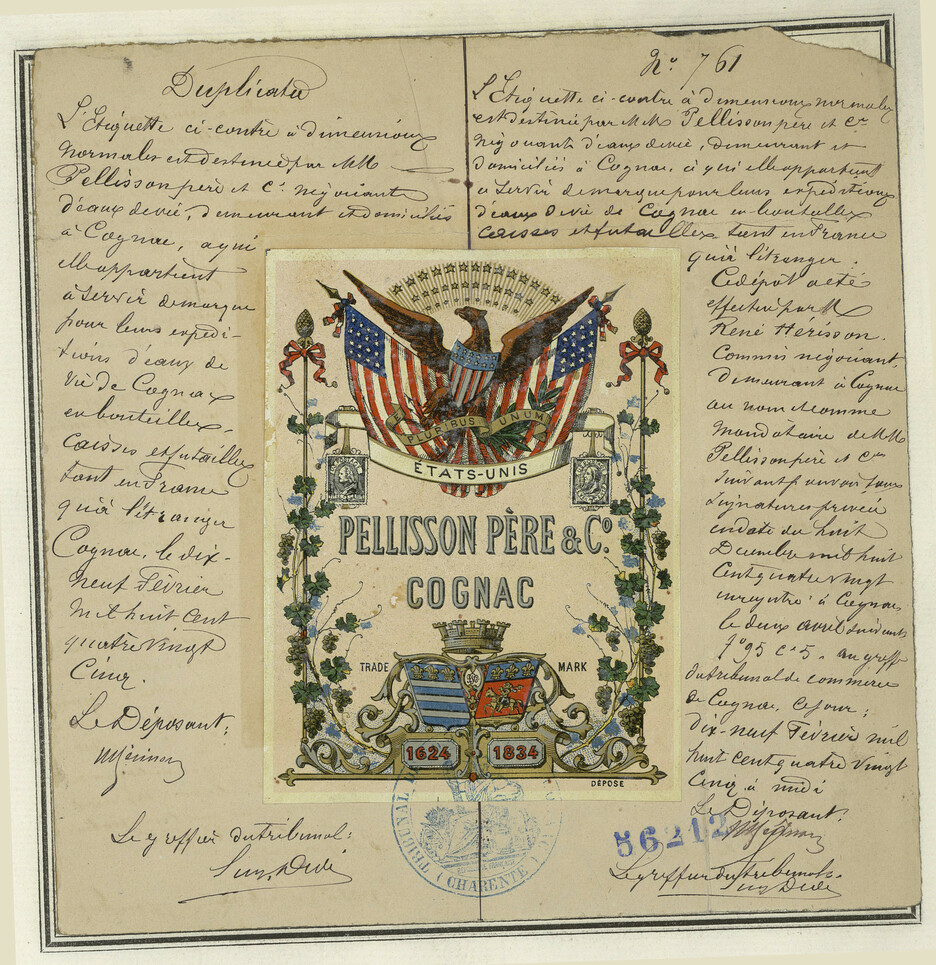 Duplicata
L'Etiquette ci-contre à dimensions
normales est destinée par MM
Pellisson père et Cie négociants
d'eaux de vie, demeurant et domiciliés
à Cognac, à qui
elle appartient
à servir de marque
pour leurs expédi-
tions d'eaux de
vie de Cognac
en bouteilles,
caisses et futailles
tant en France
qu'à l'étranger
Cognac, le dix-
neuf Février
mil huit cent
quatre vingt
Cinq.
Le Déposant;
Le greffier du tribunal:
No 761
L'Etiquette ci-contre à dimensions normales
est destinée par MM Pellisson père et Cie
négociants d'eaux de vie, demeurant et
domiciliés à Cognac, à qui elle appartient
à servir de marque pour leurs expéditions
d'eaux de vie de Cognac en bouteilles
caisses et futailles tant en France
qu'à l'étranger.
Ce dépôt a été
effectué par M
René Hérisson.
Commis négociant,
demeurant à Cognac
au nom et comme
mandataire de MM
Pellisson père et Cie
suivant pouvoir sous
signatures privées
en date du huit
Décembre mil huit
cent quatre vingt
enregistré à Cognac
le deux avril suivant
fo 95 c 5. au greffe
du tribunal de commerce
de Cognac, ce jour;
dix-neuf Février mil
huit cent quatre vingt
Cinq à midi
Le Déposant.
Le greffier du tribunal.
PLURIBUS UNUM
ÉTATS-UNIS
PELLISSON PÈRE & Co
COGNAC
TRADE MARK
1624 1834
DÉPOSÉ
TRIBUNAL DE
(CHARENTE)
56212